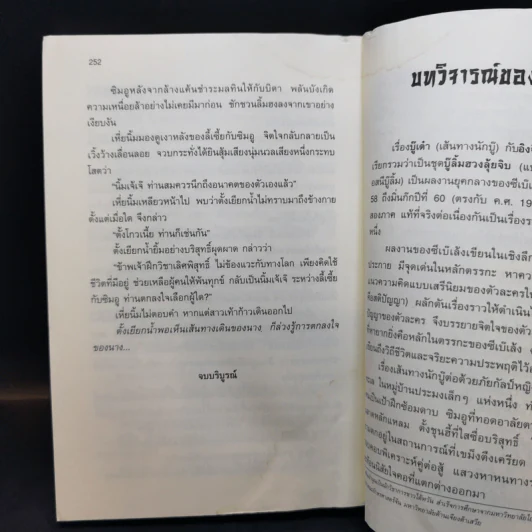 252
ซิมอูหลังจากล้างแค้นชำระมลทินให้กับบิดา พลันบังเกิด
ความเหนื่อยล้าอย่างไม่เคยมีมาก่อน ชักชวนลิ้มฮงลงจากเขาอย่าง
เงียบงัน
เหี่ยนิ้มมองดูเงาหลังของลี้เซี้ยกับซิมอู จิตใจกลับกลายเป็น
เวิ้งว้างเลื่อนลอย จวบกระทั่งได้ยินสุ้มเสียงนุ่มนวลเสียงหนึ่งกระทบ
โสตว่า
“นิ้มเจ้เจ้ ท่านสมควรนึกถึงอนาคตของตัวเองแล้ว”
เหี่ยนิ้มเหลียวหน้าไป พบว่าตั้งเยียกน้ำไม่ทราบมาถึงข้างกาย
ตั้งแต่เมื่อใด จึงกล่าว
“ตั้งโกวเนี้ย ท่านก็เช่นกัน”
ตั้งเยียกน้ำยิ้มอย่างบริสุทธิ์ผุดผาด กล่าวว่า
“ข้าพเจ้าฝึกวิชาเลิศพิสุทธิ์ ไม่ข้องแวะกับทางโลก เพียงคิดใช้
ชีวิตที่มีอยู่ ช่วยเหลือผู้คนให้พ้นทุกข์ กลับเป็นนิ้มเจ้เจ้ ระหว่างลี้เซี้ย
กับซิมอู ท่านตกลงใจเลือกผู้ใด?”
เหี่ยนิ้มไม่ตอบคำ หากแต่สาวเท้าก้าวเดินออกไป
ตั้งเยียกน้ำพอเห็นเส้นทางเดินของนาง ก็ล่วงรู้การตกลงใจ
ของนาง...
จบบริบูรณ์
บทวิจารณ์ของ
เรื่องบู๊เต้า (เส้นทางนักบู๊) กับอิง
เรียกรวมว่าเป็นชุดบู๊ลิ้มฮวงลุ้ยจิบ
เป็นผลงานยุคกลางของซีเบ๊เ
58 ถึงมิ่นกักปีที่ 60 (ตรงกับ ค.ศ. 19
สองภาค แท้ที่จริงต่อเนื่องกันเป็นเรื่องรา
หนึ่ง
ผลงานของซีเบ๊เล้งเขียนในเชิงลึก
ประกาย มีจุดเด่นในหลักตรรกะ หาคว
แนวความคิดแบบเสรีนิยมของตัวละครใน
ผลักดันเรื่องราวให้ดำเนิน
ปัญญาของตัวละคร จึงบรรยายจิตใจของตัว
ยิ่งคือหลักในตรรกะของซีเบ๊เล้ง
ถึงวิถีชีวิตและจริยะความประพฤติไว้อ
เรื่องเส้นทางนักบู๊ต่อด้วยภัยกัลป์หญิง
ในหมู่บ้านประมงเล็กๆ แห่งหนึ่ง
เป็นเป้าฝึกซ้อมดาบ ซิมอูที่ทอดอาลัย
หลักแหลม ตั้งชุนฮี้ที่ใสซื่อบริสุทธิ์
อยู่ในสถานการณ์ที่เขม็งตึงเครียด
วิเคราะห์คู่ต่อสู้ แสวงหาหนทาง
นิสัยใจคอที่แตกต่างออกมา